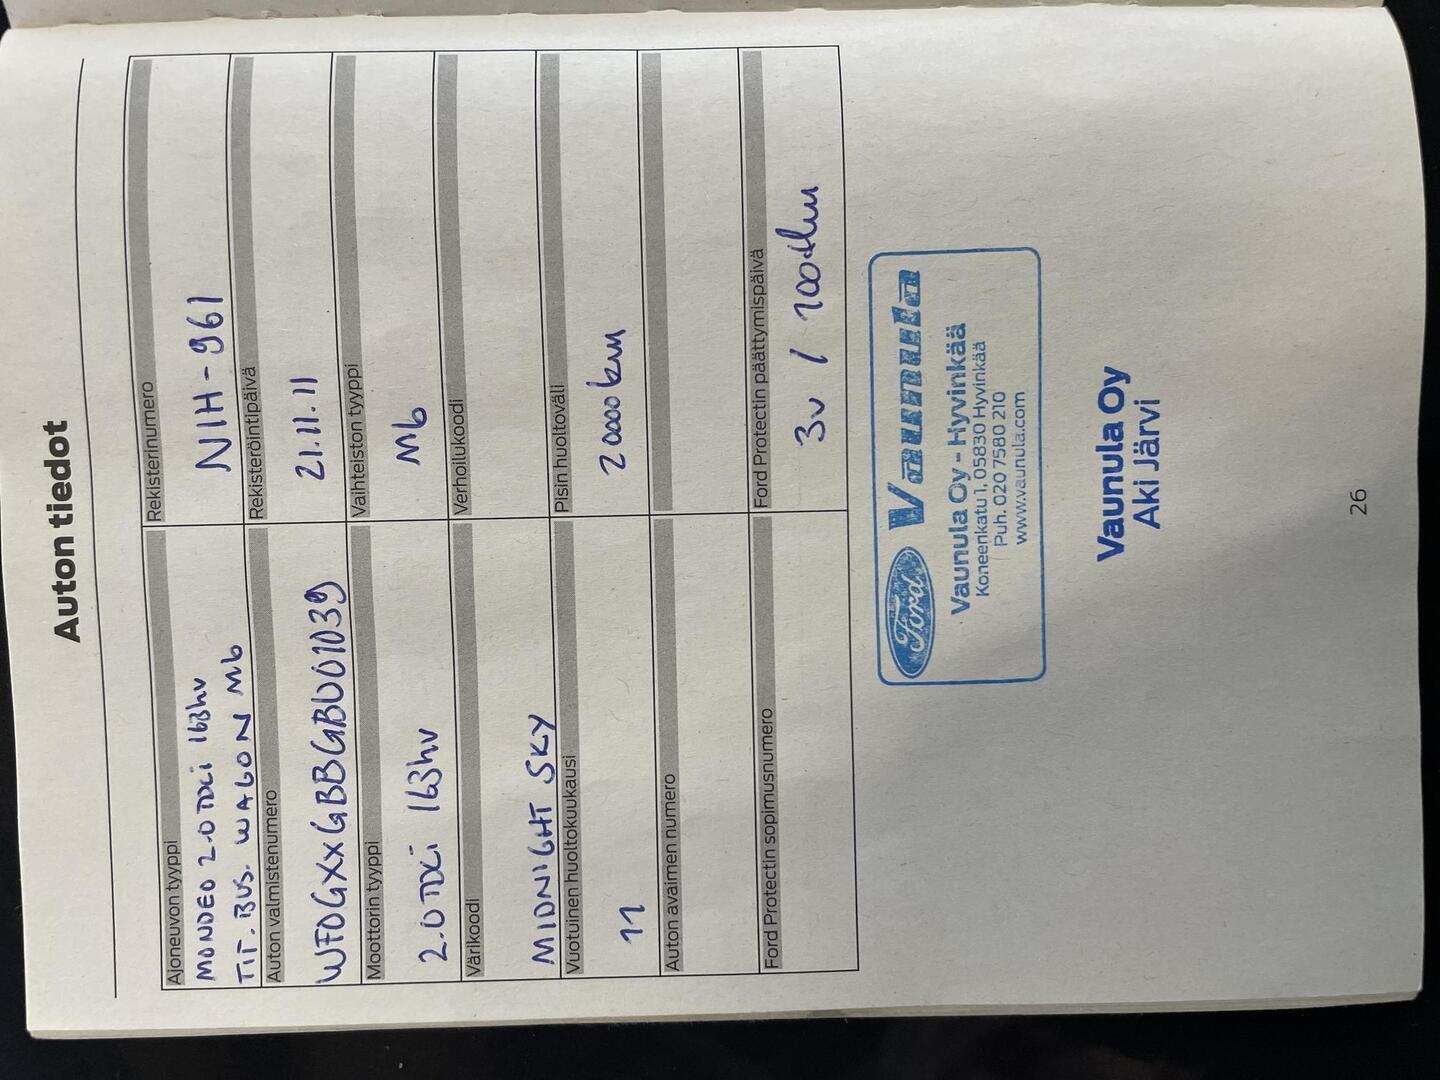 Auton tiedot
Ajoneuvon tyyppi
MONDEO 2.0 TDCi 163hv
TIT. BUS. WAGON M6
Rekisterinumero
NIH-961
Auton valmistenumero
WF0GXXGBBGBU01039
Rekisteröintipäivä
21.11.11
Moottorin tyyppi
2.0 TDCi 163hv
Vaihteiston tyyppi
M6
Värikoodi
MIDNIGHT SKY
Verhoilukoodi
Vuotuinen huoltokuukausi
11
Pisin huoltoväli
20000 km
Auton avaimen numero
Ford Protectin sopimusnumero
Ford Protectin päättymispäivä
3v / 100tkm
Ford Vaunula
Vaunula Oy - Hyvinkää
Koneenkatu 1, 05830 Hyvinkää
Puh. 020 7580 210
www.vaunula.com
Vaunula Oy
Aki Järvi
26